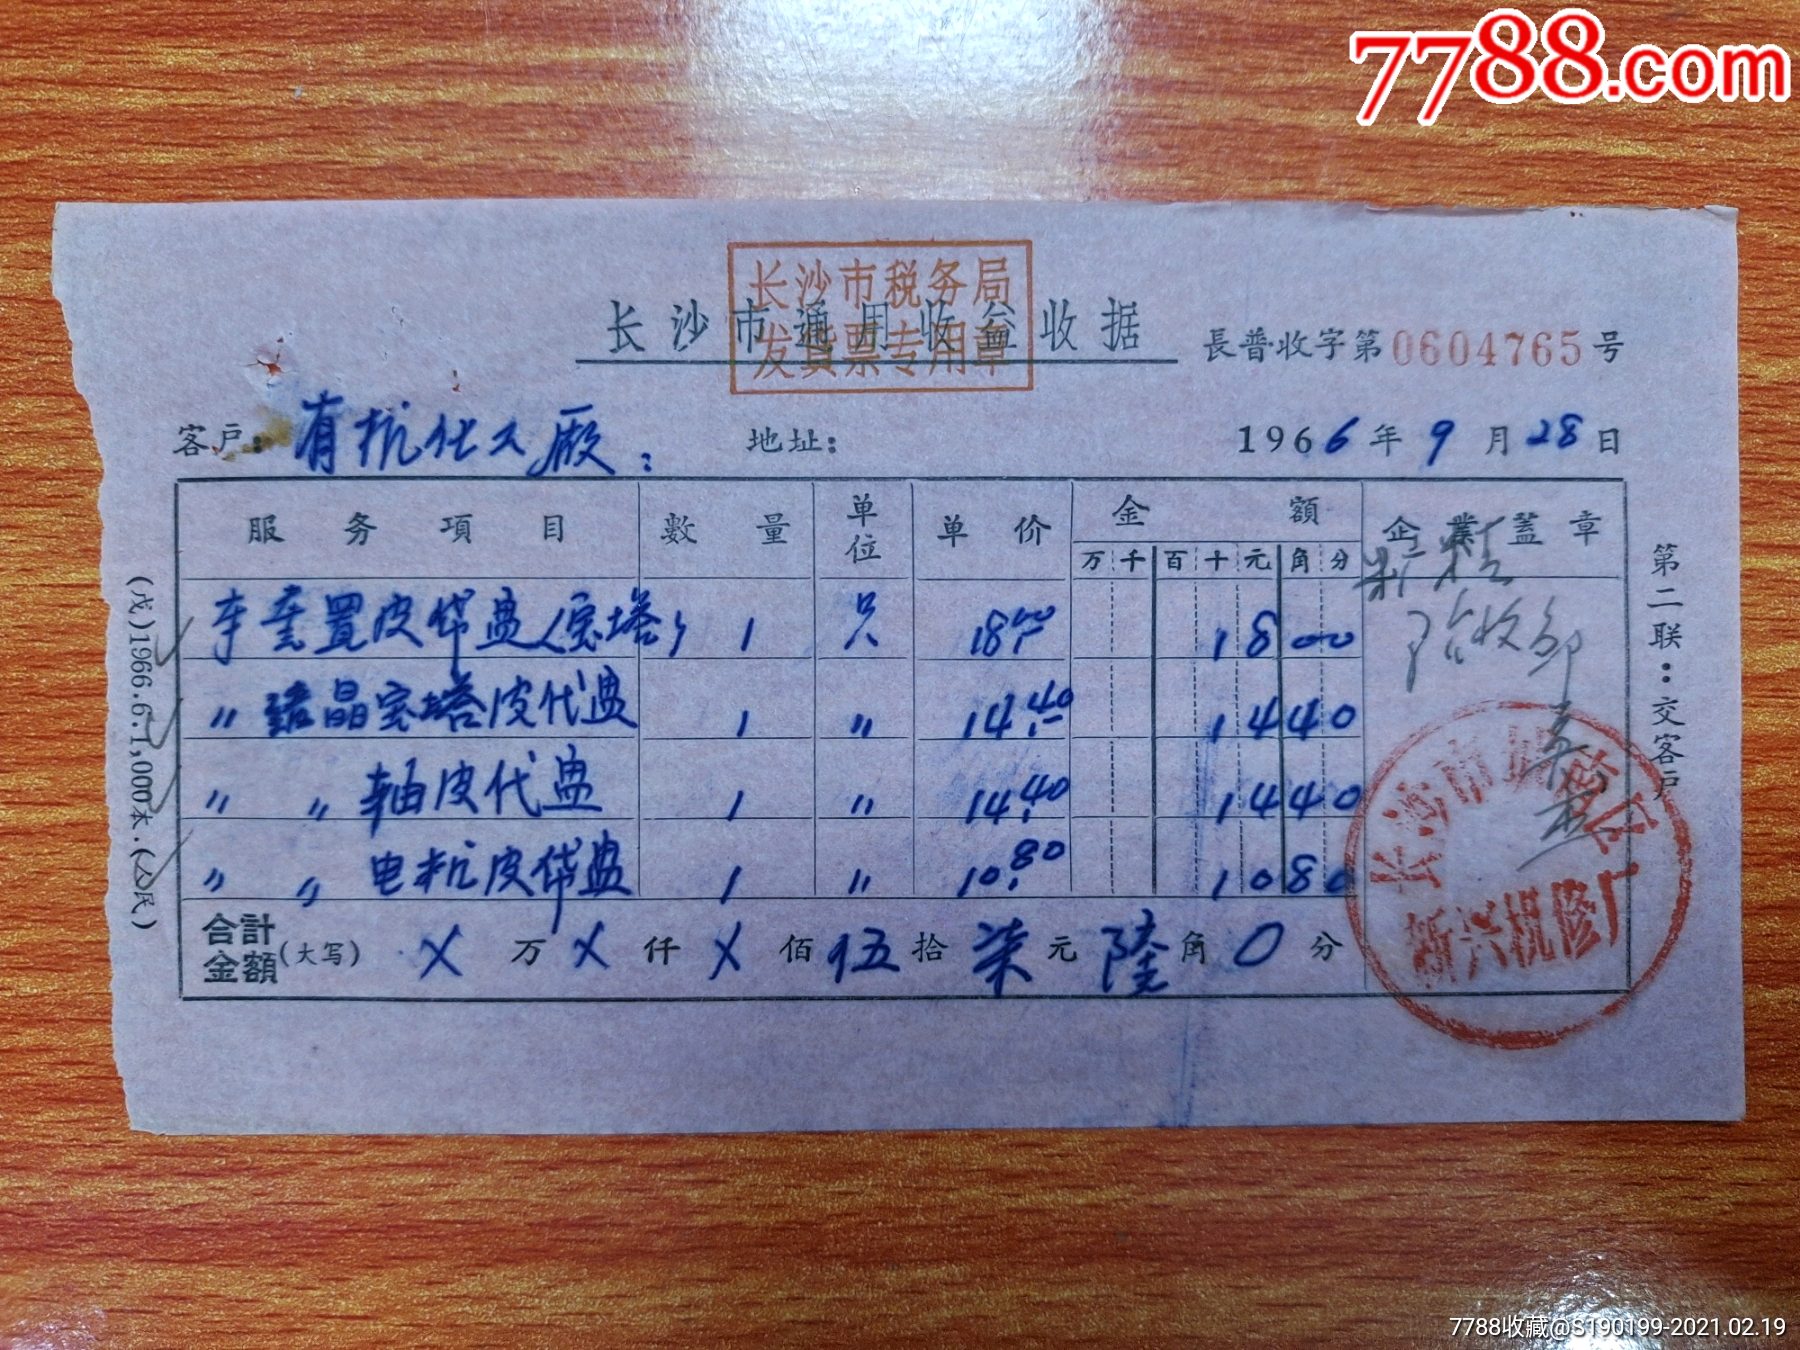 7788.com
长沙市税务局
发货票专用章
长沙市通用收益收据
長普收字第0604765号
客户: 有机化工厰:
地址:
1966年9月28日
服务項目 數量 单位 单价 金額 企業蓋章
万千百十元角分
車 置皮带盘(宝塔) 1 只 18.00 1800
" 晶宝塔皮代盘 1 " 14.40 1440
" " 軸皮代盘 1 " 14.40 1440
" " 电机皮带盘 1 " 10.80 1080
合計金額(大写) X万X仟X佰伍拾柒元陸角0分
验收
长沙市
新兴机修厂
第二联:交客户
(戊)1966.6.1,000本.(人民)
7788收藏@S190199-2021.02.19